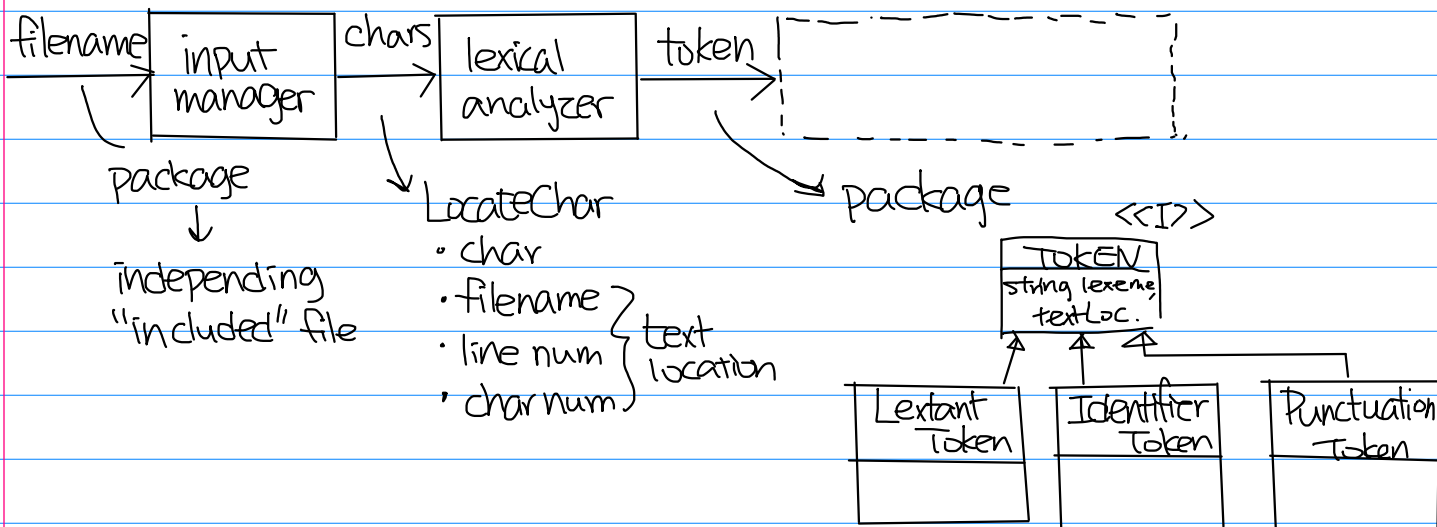 filename
input
manager
chars
lexical
analyzer
token
package
independing
"included" file
LocateChar
• char
• filename
• line num
• char num
text
location
package
<<I>>
TOKEN
string lexeme,
textLoc.
Lextant
Token
Identifier
Token
Punctuation
Token